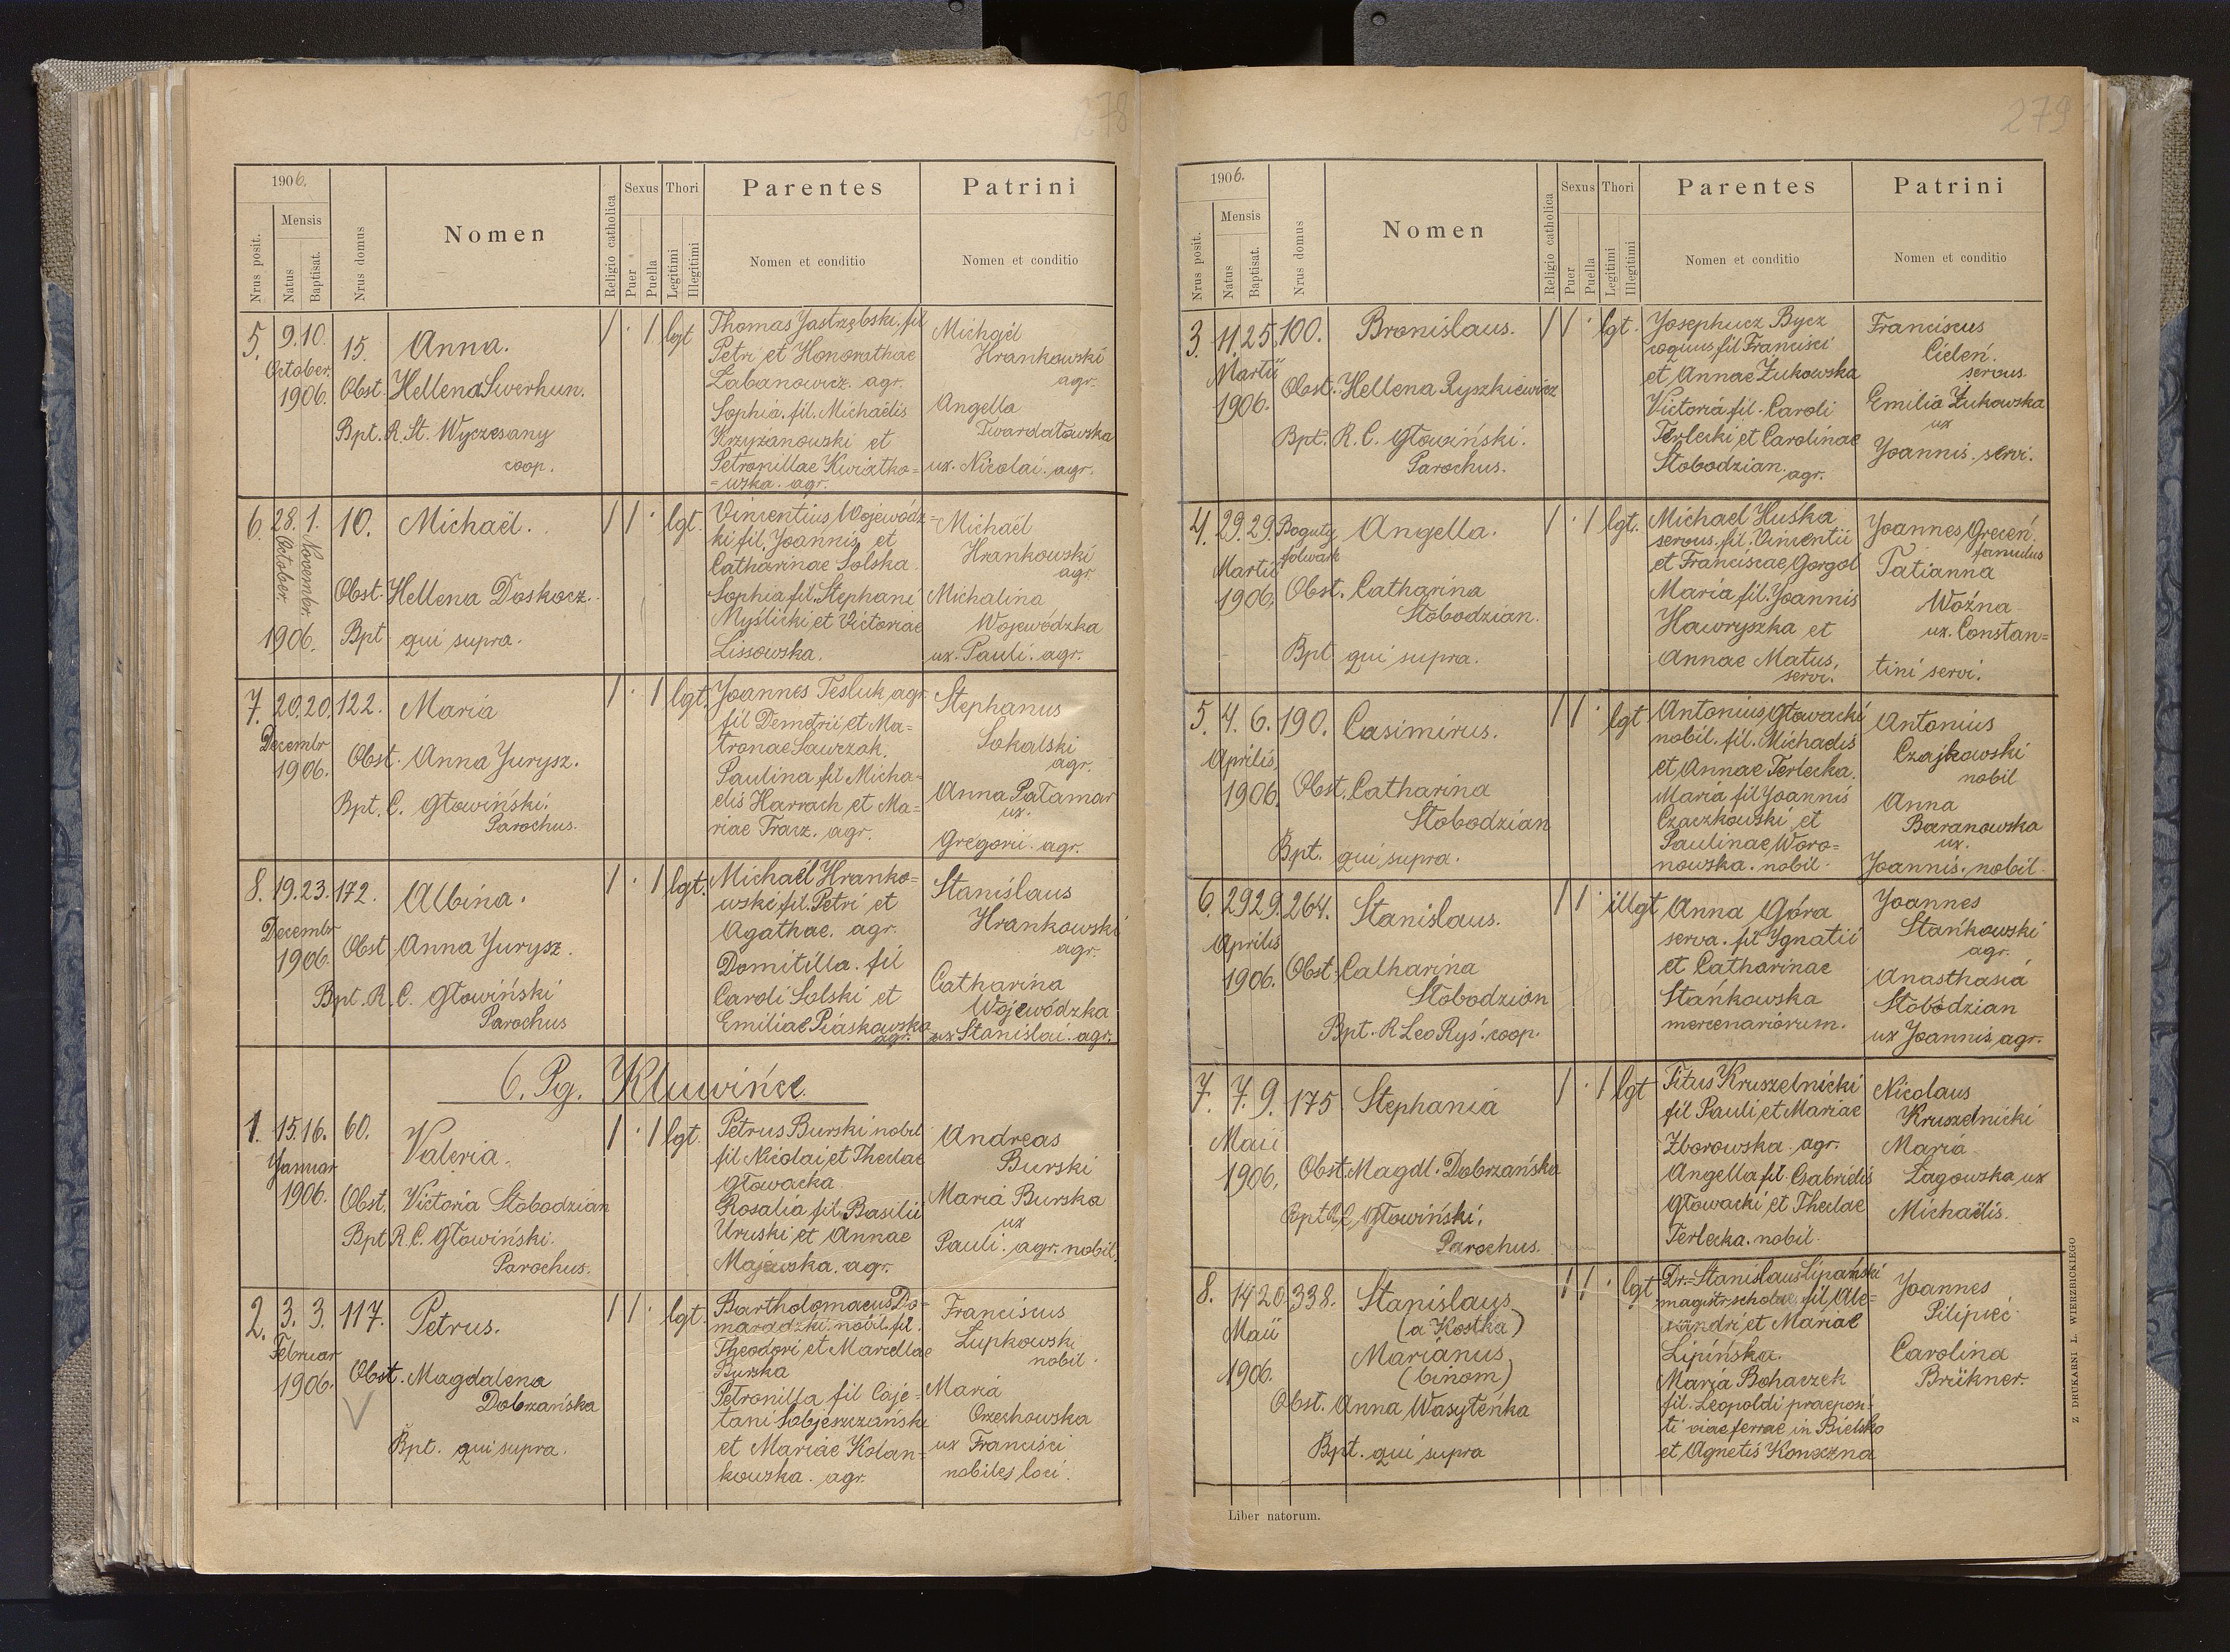 278
1906.
Nrus posit.
Mensis
Natus
Baptisat.
Nrus domus
Nomen
Religio catholica
Sexus
Puer
Puella
Thori
Legitimi
Illegitimi
Parentes
Nomen et conditio
Patrini
Nomen et conditio
5. 9. 10. October. 1906. 15. Anna. 1 · 1 lgt
Obst. Hellena Swerhun.
Bpt. R. St. Wyczesany
coop.
Thomas Jastrzębski. fil
Petri et Honorathae
Łabanowicz. agr.
Sophia. fil. Michaëlis
Krzyżanowski et
Petronillae Kwiatko=
=wska. agr.
Michaël
Hrankowski
agr.
Angella
Twardatowska
ux. Nicolai. agr.
6. 28. October 1. November 1906. 10. Michaël. 1 1 · lgt.
Obst. Hellena Doskocz.
Bpt qui supra.
Vincentius Wojewódz=
ki fil. Joannis et
Catharinae Solska.
Sophia fil. Stephani
Myślicki et Victoriae
Lissowska.
Michaël
Hrankowski
agr.
Michalina
Wojewódzka
ux. Pauli. agr.
7. 20. 20. Decembr 1906. 122. Maria 1 · 1 lgt.
Obst. Anna Jurysz.
Bpt. C. Głowiński.
Parochus.
Joannes Tesluk agr
fil Demetrii et Ma=
tronae Sawczak.
Paulina fil Micha=
elis Harrach et Ma=
riae Tracz. agr.
Stephanus
Sokalski
agr.
Anna Pałamar
ux.
Gregorii. agr.
8. 19. 23. Decembr 1906. 172. Albina. 1 · 1 lgt.
Obst Anna Jurysz.
Bpt. R. C. Głowiński
Parochus
Michaël Hranko=
wski fil. Petri et
Agathae. agr.
Domitilla. fil
Caroli Solski et
Emiliae Piaskowska
agr.
Stanislaus
Hrankowski
agr.
Catharina
Wojewódzka
ux Stanislai. agr.
6. Pg. Kluwińce.
1. 15. 16. Januar 1906. 60. Valeria. 1 · 1 lgt.
Obst. Victoria Słobodzian
Bpt R. C. Głowiński.
Parochus.
Petrus Burski nobil
fil Nicolai et Theclae
Głowacka.
Rosalia fil Basilii
Uruski et Annae
Majewska. agr.
Andreas
Burski
Maria Burska
ux
Pauli. agr. nobil.
2. 3. 3. Februar 1906. 117. Petrus. 1 1 · lgt.
Obst. Magdalena
Dobrzańska
Bpt. qui supra.
Bartholomaeus Do=
maradzki. nobil. fil.
Theodori et Marcellae
Burska
Petronilla fil Caje=
tani Sobjeszczański
et Mariae Kolan=
kowska. agr.
Franciscus
Łupkowski
nobil.
Maria
Orzechowska
ux Francisci
nobiles loci.
279
1906.
Nrus posit.
Mensis
Natus
Baptisat.
Nrus domus
Nomen
Religio catholica
Sexus
Puer
Puella
Thori
Legitimi
Illegitimi
Parentes
Nomen et conditio
Patrini
Nomen et conditio
3. 11. 25. Martii 1906. 100. Bronislaus. 1 1 · lgt.
Obst. Hellena Ryszkiewicz
Bpt. R. C. Głowiński.
Parochus.
Josephucz Bycz
coquus fil Francisci
et Annae Żukowska
Victoria fil. Caroli
Terlecki et Carolinae
Słobodzian. agr.
Franciscus
Cieleń.
servus.
Emilia Żukowska
ux
Joannis. servi.
4. 29. 29. Martii 1906. Boguty folwark Angella. 1 · 1 lgt.
Obst. Catharina
Słobodzian.
Bpt qui supra.
Michael Huśka
servus. fil. Vincentii
et Franciscae Gorgol
Maria fil. Joannis
Hawryszka et
Annae Matus.
servi.
Joannes Greceń.
famulus
Tatianna
Woźna
ux. Constan=
tini servi.
5. 4. 6. Aprilis 1906. 190. Casimirus. 1 1 · lgt
Obst. Catharina
Słobodzian
Bpt. qui supra.
Antonius Głowacki
nobil. fil. Michaelis
et Annae Terlecka.
Maria fil Joannis
Czaczkowski et
Paulinae Woro=
nowska. nobil.
Antonius
Czajkowski
nobil
Anna
Baranowska
ux.
Joannis. nobil.
6. 29 29. Aprilis 1906. 264. Stanislaus. 1 1 · illgt
Obst. Catharina
Słobodzian
Bpt. R Leo Ryś. coop.
Anna Góra
serva. fil Ignatii
et Catharinae
Stańkowska
mercenariorum.
Joannes
Stańkowski
agr.
Anasthasia
Słobodzian
ux Joannis agr.
7. 7. 9. Maii 1906. 175 Stephania 1 · 1 lgt
Obst. Magdl. Dobrzańska
Bpt R C Głowiński.
Parochus.
Titus Kruszelnicki
fil Pauli et Mariae
Zborowska. agr.
Angella fil. Gabrielis
Głowacki et Theclae
Terlecka. nobil.
Nicolaus
Kruszelnicki
Maria
Zagowska ux
Michaëlis.
8. 14 20. Maii 1906. 338. Stanislaus 1 1 · lgt
(a Kostka)
Marianus
(binom)
Obst. Anna Wasyteńka
Bpt. qui supra
Dr. Stanislaus Lipański
magistr scholae. fil. Ale=
xandri et Mariae
Lipińska.
Marya Bohaczek
fil. Leopoldi praeposi=
ti viae ferrae in Bielsko
et Agnetis Koneczna
Joannes
Pilipieć
Carolina
Brükner.
Liber natorum.
Z DRUKARNI L. WIERZBICKIEGO